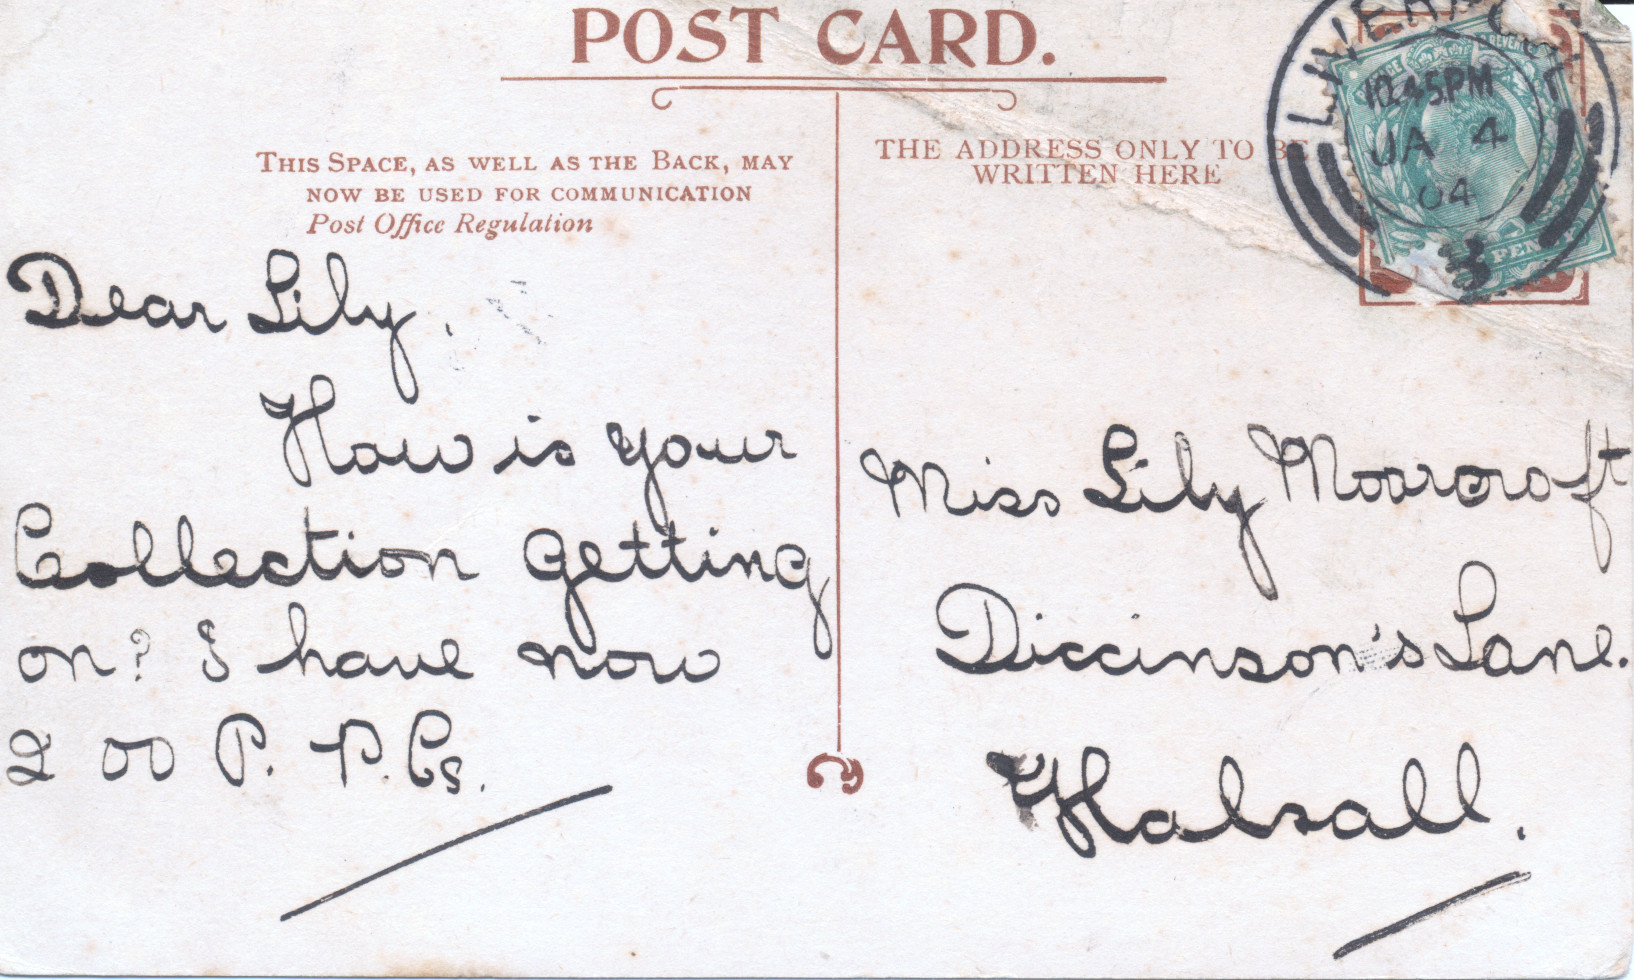 POST CARD.
THIS SPACE, AS WELL AS THE BACK, MAY
NOW BE USED FOR COMMUNICATION
Post Office Regulation
THE ADDRESS ONLY TO BE
WRITTEN HERE
LIVERPOOL
10.45PM
JA 4
04
3
Dear Lily,
How is your
Collection getting
on? I have now
200 P. P. Cs.
Miss Lily Moorcroft
Diccinson's Lane.
Halsall.